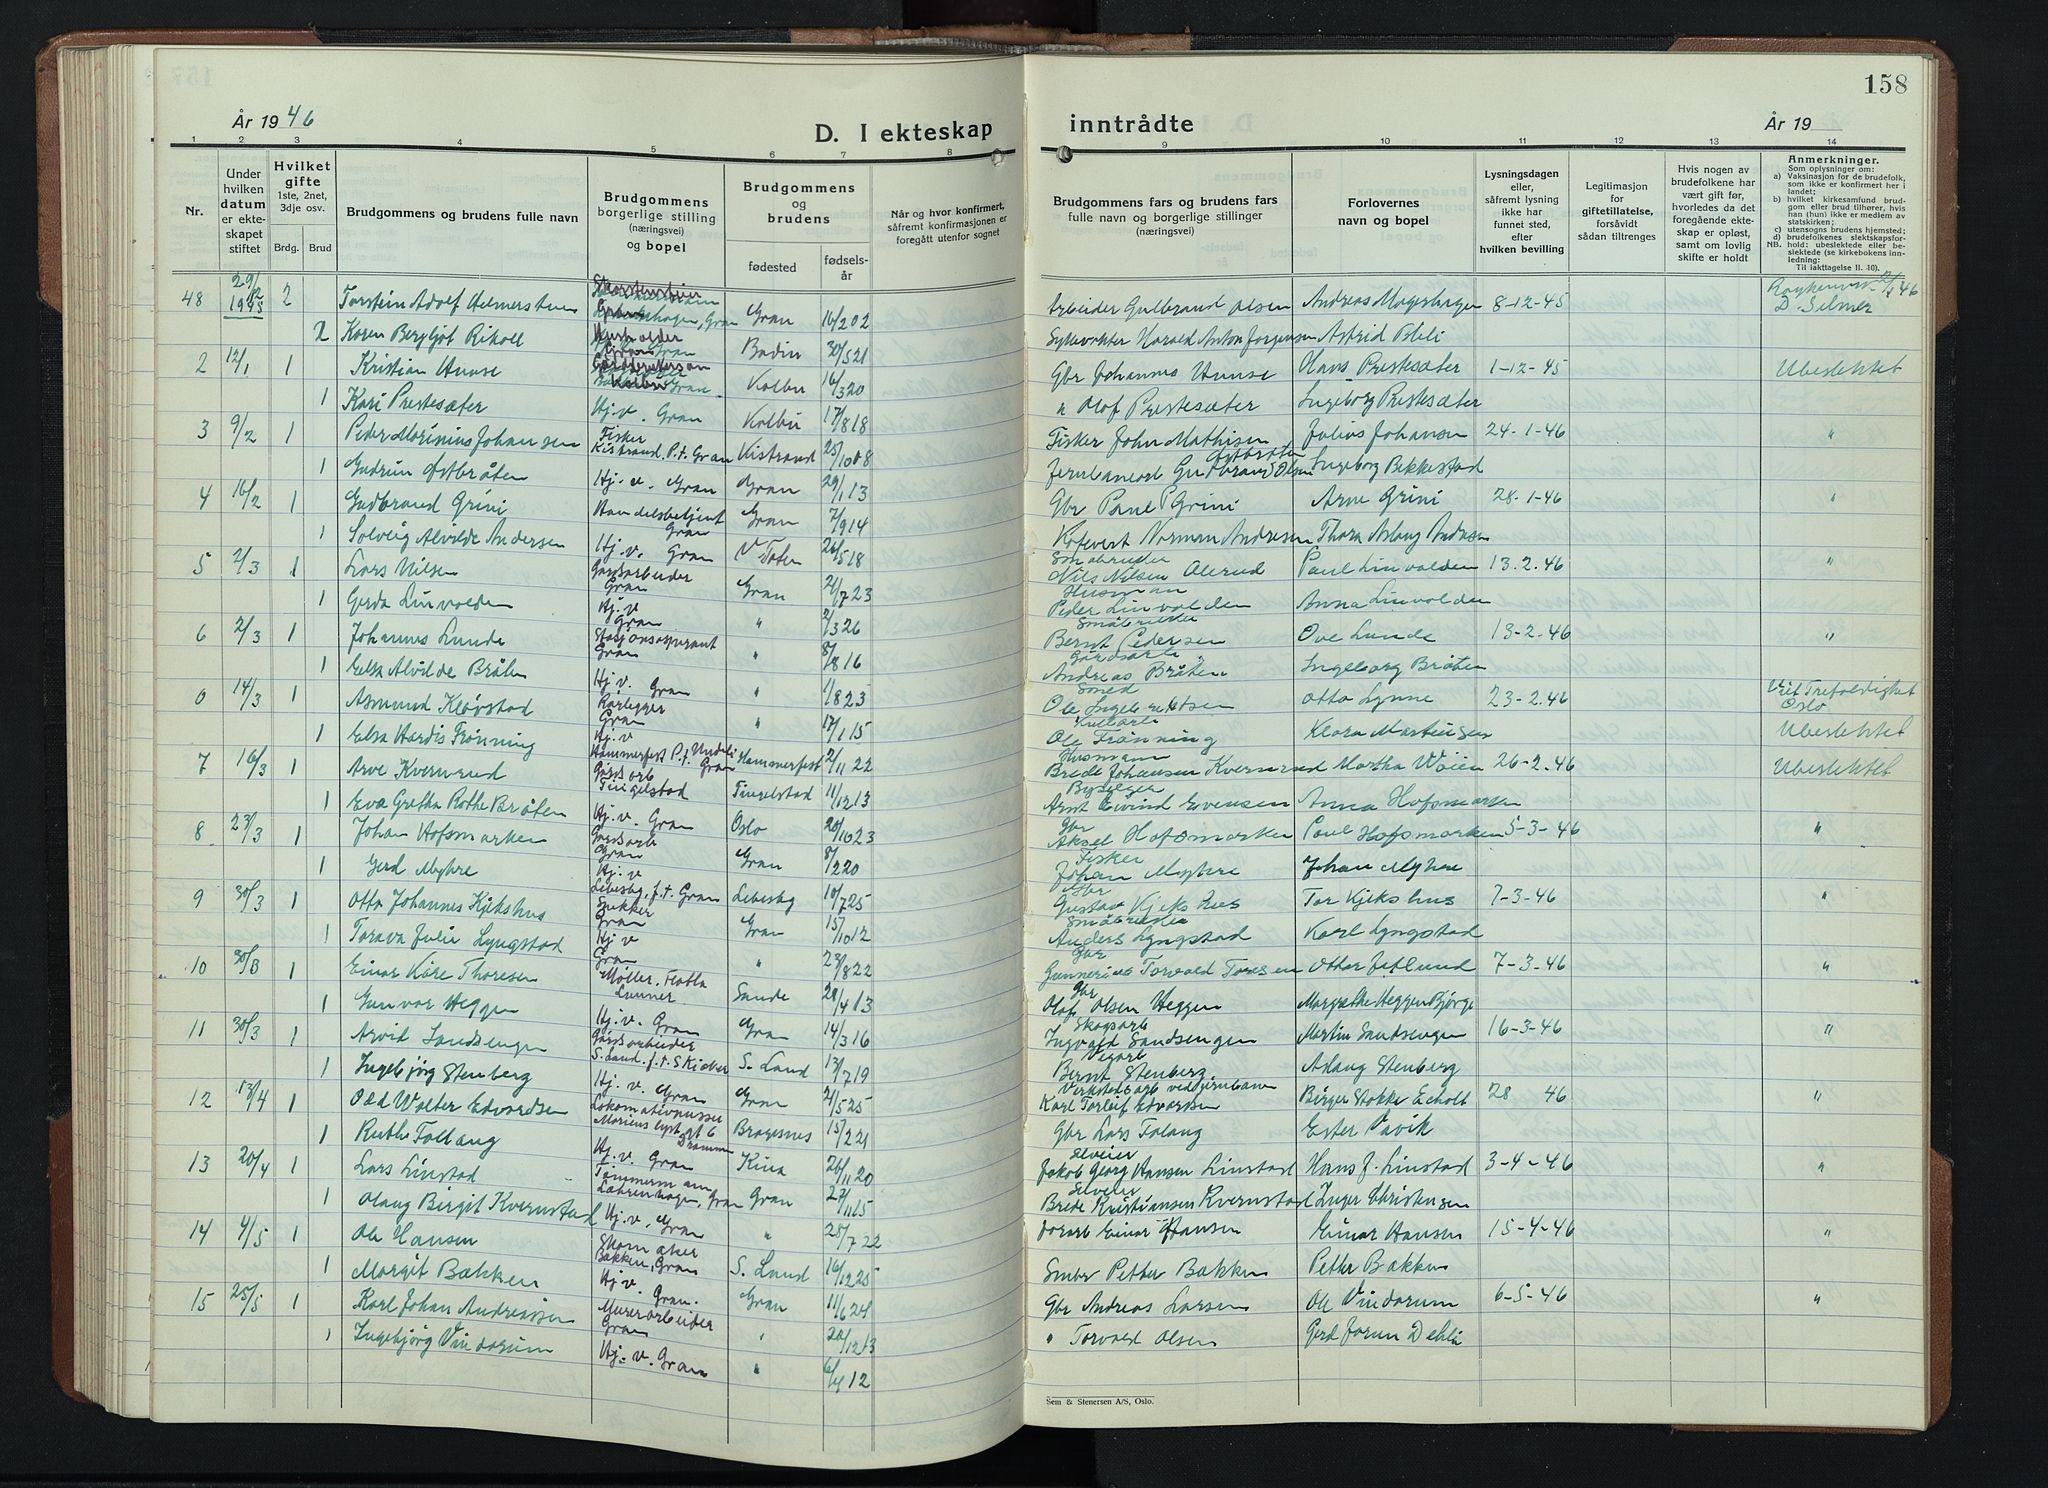 158
År 1946
D. I ekteskap
inntrådte
År 19
1 2 3 4 5 6 7 8
9 10 11 12 13 14
Nr.
Under hvilken datum er ekteskapet stiftet
Hvilket gifte
1ste, 2net, 3dje osv.
Brdg. Brud
Brudgommens og brudens fulle navn
Brudgommens borgerlige stilling (næringsvei) og bopel
Brudgommens og brudens
fødested
fødselsår
Når og hvor konfirmert, såfremt konfirmasjonen er foregått utenfor sognet
Brudgommens fars og brudens fars fulle navn og borgerlige stillinger (næringsvei)
Forlovernes navn og bopel
Lysningsdagen eller, såfremt lysning ikke har funnet sted, efter hvilken bevilling
Legitimasjon for giftetillatelse, forsåvidt sådan tiltrenges
Hvis nogen av brudefolkene har vært gift før, hvorledes da det foregående ekteskap er opløst, samt om lovlig skifte er holdt
Anmerkninger.
Som oplysning om:
a) Vaksinasjon for de brudefolk, som ikke er konfirmert her i landet;
b) hvilket kirkesamfund brudgom eller brud tilhører, hvis han (hun) ikke er medlem av statskirken;
c) utensogns brudens hjemsted;
d) brudefolkenes slektskapsforhold: ubeslektede eller beslektede (se kirkebokens innledning:
NB.
Til iakttagelse II. 10).
48 29/12 1945 2 Torstein Adolf Gran 16/2 02 Arbeider Gulbrand Olsen Andreas 8-12-45 D. Selmer
2 Karen Bergljot 30/5 21 Harald Anton Jørgensen Astrid
2 12/1 1 Kristian Gran Kolbu 16/3 20 Gbr Johannes Hans Prestesæter 1-12-45 Ubeslektet
1 Kari Prestesæter Hj. v. Gran Kolbu 17/8 18 " Olof Prestesæter Ingeborg Prestesæter
3 9/2 1 Peder Marinius Johansen Fisker Kistrand. P.t. Gran Kistrand 25/10 08 Fisker John Mathisen Julius Johansen 24-1-46 "
1 Gudrun Østbråten Hj. v. Gran Gran 29/1 13 Østbråten Ingeborg Bekkestad
4 16/2 1 Gudbrand Grini Handelsbetjent Gran Gran 7/9 14 Gbr Paul P Grini Arne Grini 28-1-46 "
1 Solveig Alvilde Andersen Hj. v. Gran V Toten 26/5 18 Norman Andresen Thora Aslaug Andresen
5 2/3 1 Lars Nilsen Gårdsarbeider Gran Gran 21/7 23 Småbruker Nils Nilsen Paul Linvolden 13.2.46 "
1 Gerda Linvolden Hj. v Gran " 2/3 26 Husman Peder Linvolden Anna Linvolden
6 2/3 1 Johannes Lunde Stasjonsaspirant Gran " 8/8 16 Småbruker Bernt Pedersen Ove Lunde 13-2-46 "
1 Elsa Alvilde Bråten Hj. v. Gran " 1/8 23 Gårdsarb Andreas Bråten Ingeborg Bråten
0 14/3 1 Asmund Kløvstad Rørlegger Gran " 17/1 15 Smed Ole Otto Lynne 23-2.46 Viet Trefoldighet Oslo
1 Elsa Hardis Trønning Hj. v Hammerfest P.t. Gran Hammerfest 2/11 22 Ole Trønning Klara Martinsen Ubeslektet
7 16/3 1 Arve Kvernrud Gårdsarb Tingelstad Tingelstad 11/12 13 Husmann Brede Johansen Kvernrud Martha 26-2.46 Ubeslektet
1 Eva Gretha Rothe Bråten Hj. v. Gran Oslo 20/10 23 Arnt Eivind Evensen Anna Hofsmarken
8 23/3 1 Johan Hofsmarken Gårdsarb Gran Gran 8/2 20 Gbr Aksel Hofsmarken Paul Hofsmarken 5-3-46 "
1 Gerd Myhre Hj. v Lebesby p.t. Gran Lebesby 10/7 25 Fisker Johan Myhre Johan Myhre
9 30/3 1 Otto Johannes Kjekshus Snekker Gran Gran 15/10 12 Gbr Gustav Kjekshus Tor Kjekshus 7-3-46 "
1 Torava Julie Lyngstad Hj. v Gran " 23/8 22 Småbruker Anders Lyngstad Karl Lyngstad
10 30/3 1 Einar Kåre Thoresen Møller, Lunner Sande 28/4 13 Gbr Torvald Toresen Ottar 7-3-46 "
1 Gunvor Heggen Hj. v. Gran Gran 14/3 16 Gbr Olaf Olsen Heggen Margrethe Heggen Bjørge
11 30/3 1 Arvid Sandsengen Gårdsarbeider S. Land. p.t. S. Land 13/7 19 Skogsarb Ingvald Sandsengen Martin Sandsengen 16-3-46 "
1 Ingebjørg Stenberg Hj. v. Gran Gran 2/5 25 Vegarb Bernt Stenberg Aslaug Stenberg
12 13/4 1 Odd Walter Edvardsen Lokomotivpusser Marienlyst gt 6 Drammen Bragernes 15/2 21 Verkstedsarb ved jernbanen Karl Torleif Edvardsen Birger Stokke 28 46 "
1 Ruthe Follang Hj. v. Gran Kina 26/11 20 Gbr Lars Ester
13 20/4 1 Lars Linstad Tømmermann Gran Gran 27/11 15 Jakob Georg Hansen Linstad Hans J. Linstad 3-4-46 "
1 Olaug Birgit Kvernstad Hj. v. Gran " 28/7 22 Brede Kristiansen Kvernstad Inger Christensen
14 4/5 1 Ole Hansen Skomaker Bakken, Gran S. Land 16/12 25 Einar Hansen Einar Hansen 15-4-46 "
1 Margit Bakken Hj. v. Gran. Gran 11/6 24 Smbr Petter Bakken Petter Bakken
15 25/5 1 Karl Johan Andreassen Murerarbeider Gran " 20/12 13 Gbr Andreas Larsen Ole Vindorum 6-5-46 "
1 Ingebjørg Vindorum Hj. v. Gran " 12 " Torvald Olsen Gerd Jorun Dehli
Sem & Stenersen A/S, Oslo.